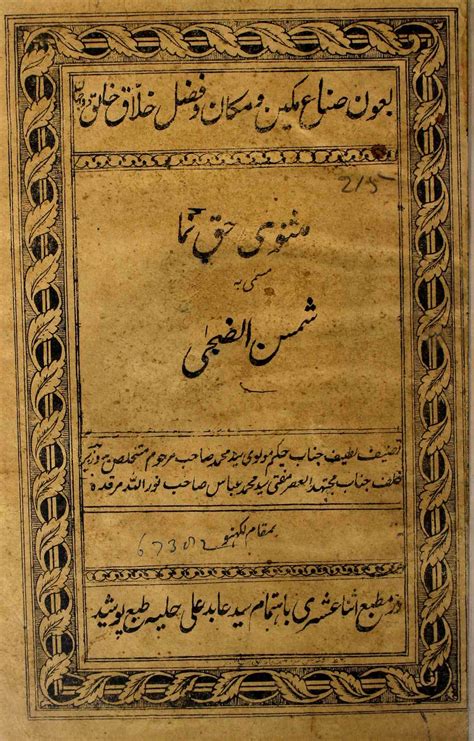 بعون صناع مکین و مکان و فضل خلاق خلق
215
مثنوی حق نما
مسمی بہ
شمس الضحیٰ
تصنیف لطیف جناب حکیم مولوی سید محمد صاحب مرحوم متخلص بہ وزیر
خلف جناب مجتہد العصر مفتی سید محمد عباس صاحب نور اللہ مرقدہ
بمقام لکھنو
در مطبع اثنا عشری باہتمام سید عابد علی حلیہ طبع پوشید